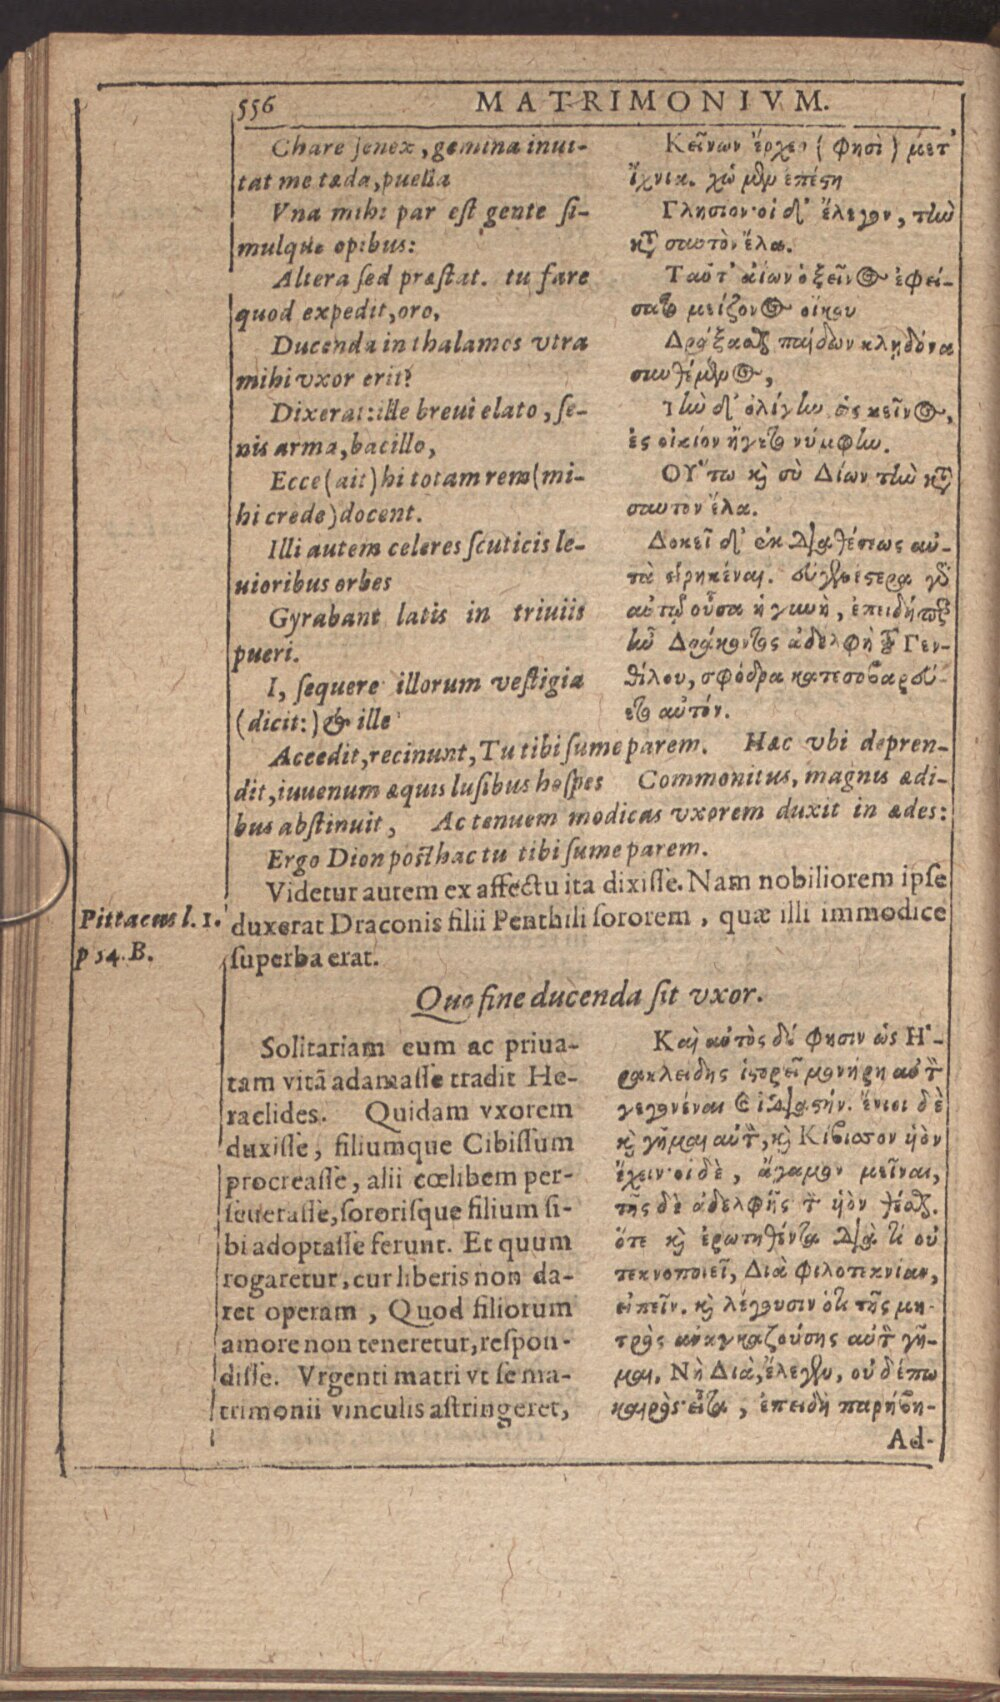 556 MATRIMONIVM.
Chare senex, gemina inui-
tat me tæda, puella
Vna mihi par est gente si-
mulque opibus:
Altera sed præstat. tu fare
quod expedit, oro,
Ducenda in thalamos vtra
mihi vxor erit?
Dixerat: ille breui elato, se-
nis arma, bacillo,
Ecce (ait) hi totam rem (mi-
hi crede) docent.
Illi autem celeres scuticis le-
uioribus orbes
Gyrabant latis in triuiis
pueri.
I, sequere illorum vestigia
(dicit:) & ille
Κείνων ἔρχεο (φησὶ) μετ'
ἴχνια. χὠ μὲν ἐπέστη
Πλησίον· οἱ δ' ἔλεγον, τὴν
κατὰ σαυτὸν ἔλα.
Ταῦτ' ἀΐων ὁ ξεῖνος ἐφεί-
σατο μείζονος οἴκου
Δράξασθαι παίδων κληδόνα
συνθέμενος,
Τὴν δ' ὀλίγην ὡς κεῖνος,
ἐς οἰκίον ἤγετο νύμφην.
ΟΥ῞τω καὶ σὺ Δίων τὴν κατὰ
σαυτὸν ἔλα.
Δοκεῖ δ' ἐκ διαθέσεως αὐ-
τὰ εἰρηκέναι. εὐγενεστέρα γὰρ
αὐτῷ οὖσα ἡ γυνὴ, ἐπειδήπερ
ἦν Δράκοντος ἀδελφὴ τοῦ Πεν-
θίλου, σφόδρα κατεσοβαρεύ-
ετο αὐτόν.
Accedit, recinunt, Tu tibi sume parem. Hæc vbi depren-
dit, iuuenum æquis lusibus hospes Commonitus, magnis ædi-
bus abstinuit, Ac tenuem modicas vxorem duxit in ædes:
Ergo Dion posthac tu tibi sume parem.
Videtur autem ex affectu ita dixisse. Nam nobiliorem ipse
Pittacus l. 1. duxerat Draconis filii Penthili sororem, quæ illi immodice
p 54. B. superba erat.
Quo fine ducenda sit vxor.
Solitariam eum ac priua-
tam vitã adamasse tradit He-
raclides. Quidam vxorem
duxisse, filiumque Cibissum
procreasse, alii cœlibem per-
seuerasse, sororisque filium si-
bi adoptasse ferunt. Et quum
rogaretur, cur liberis non da-
ret operam, Quod filiorum
amore non teneretur, respon-
disse. Vrgenti matri vt se ma-
trimonii vinculis astringeret,
Καὶ αὐτὸς δέ φησιν ὡς Η῾-
ρακλείδης ἱστορεῖ μονήρη αὐτὸν
γεγονέναι καὶ ἰδιαστήν. ἔνιοι δὲ
καὶ γῆμαι αὐτὸν, καὶ Κίβισσον υἱὸν
ἔχειν· οἱ δὲ, ἄγαμον μεῖναι,
τῆς δὲ ἀδελφῆς τὸν υἱὸν θέσθαι.
ὅτε καὶ ἐρωτηθέντα διὰ τί οὐ
τεκνοποιεῖ, Διὰ φιλοτεκνίαν,
εἰπεῖν. καὶ λέγουσιν ὅτι τῆς μη-
τρὸς ἀναγκαζούσης αὐτὸν γῆ-
μαι, Νὴ Δία, ἔλεγεν, οὐδέπω
καιρός· εἶτα, ἐπειδὴ παρήβη-
Ad-